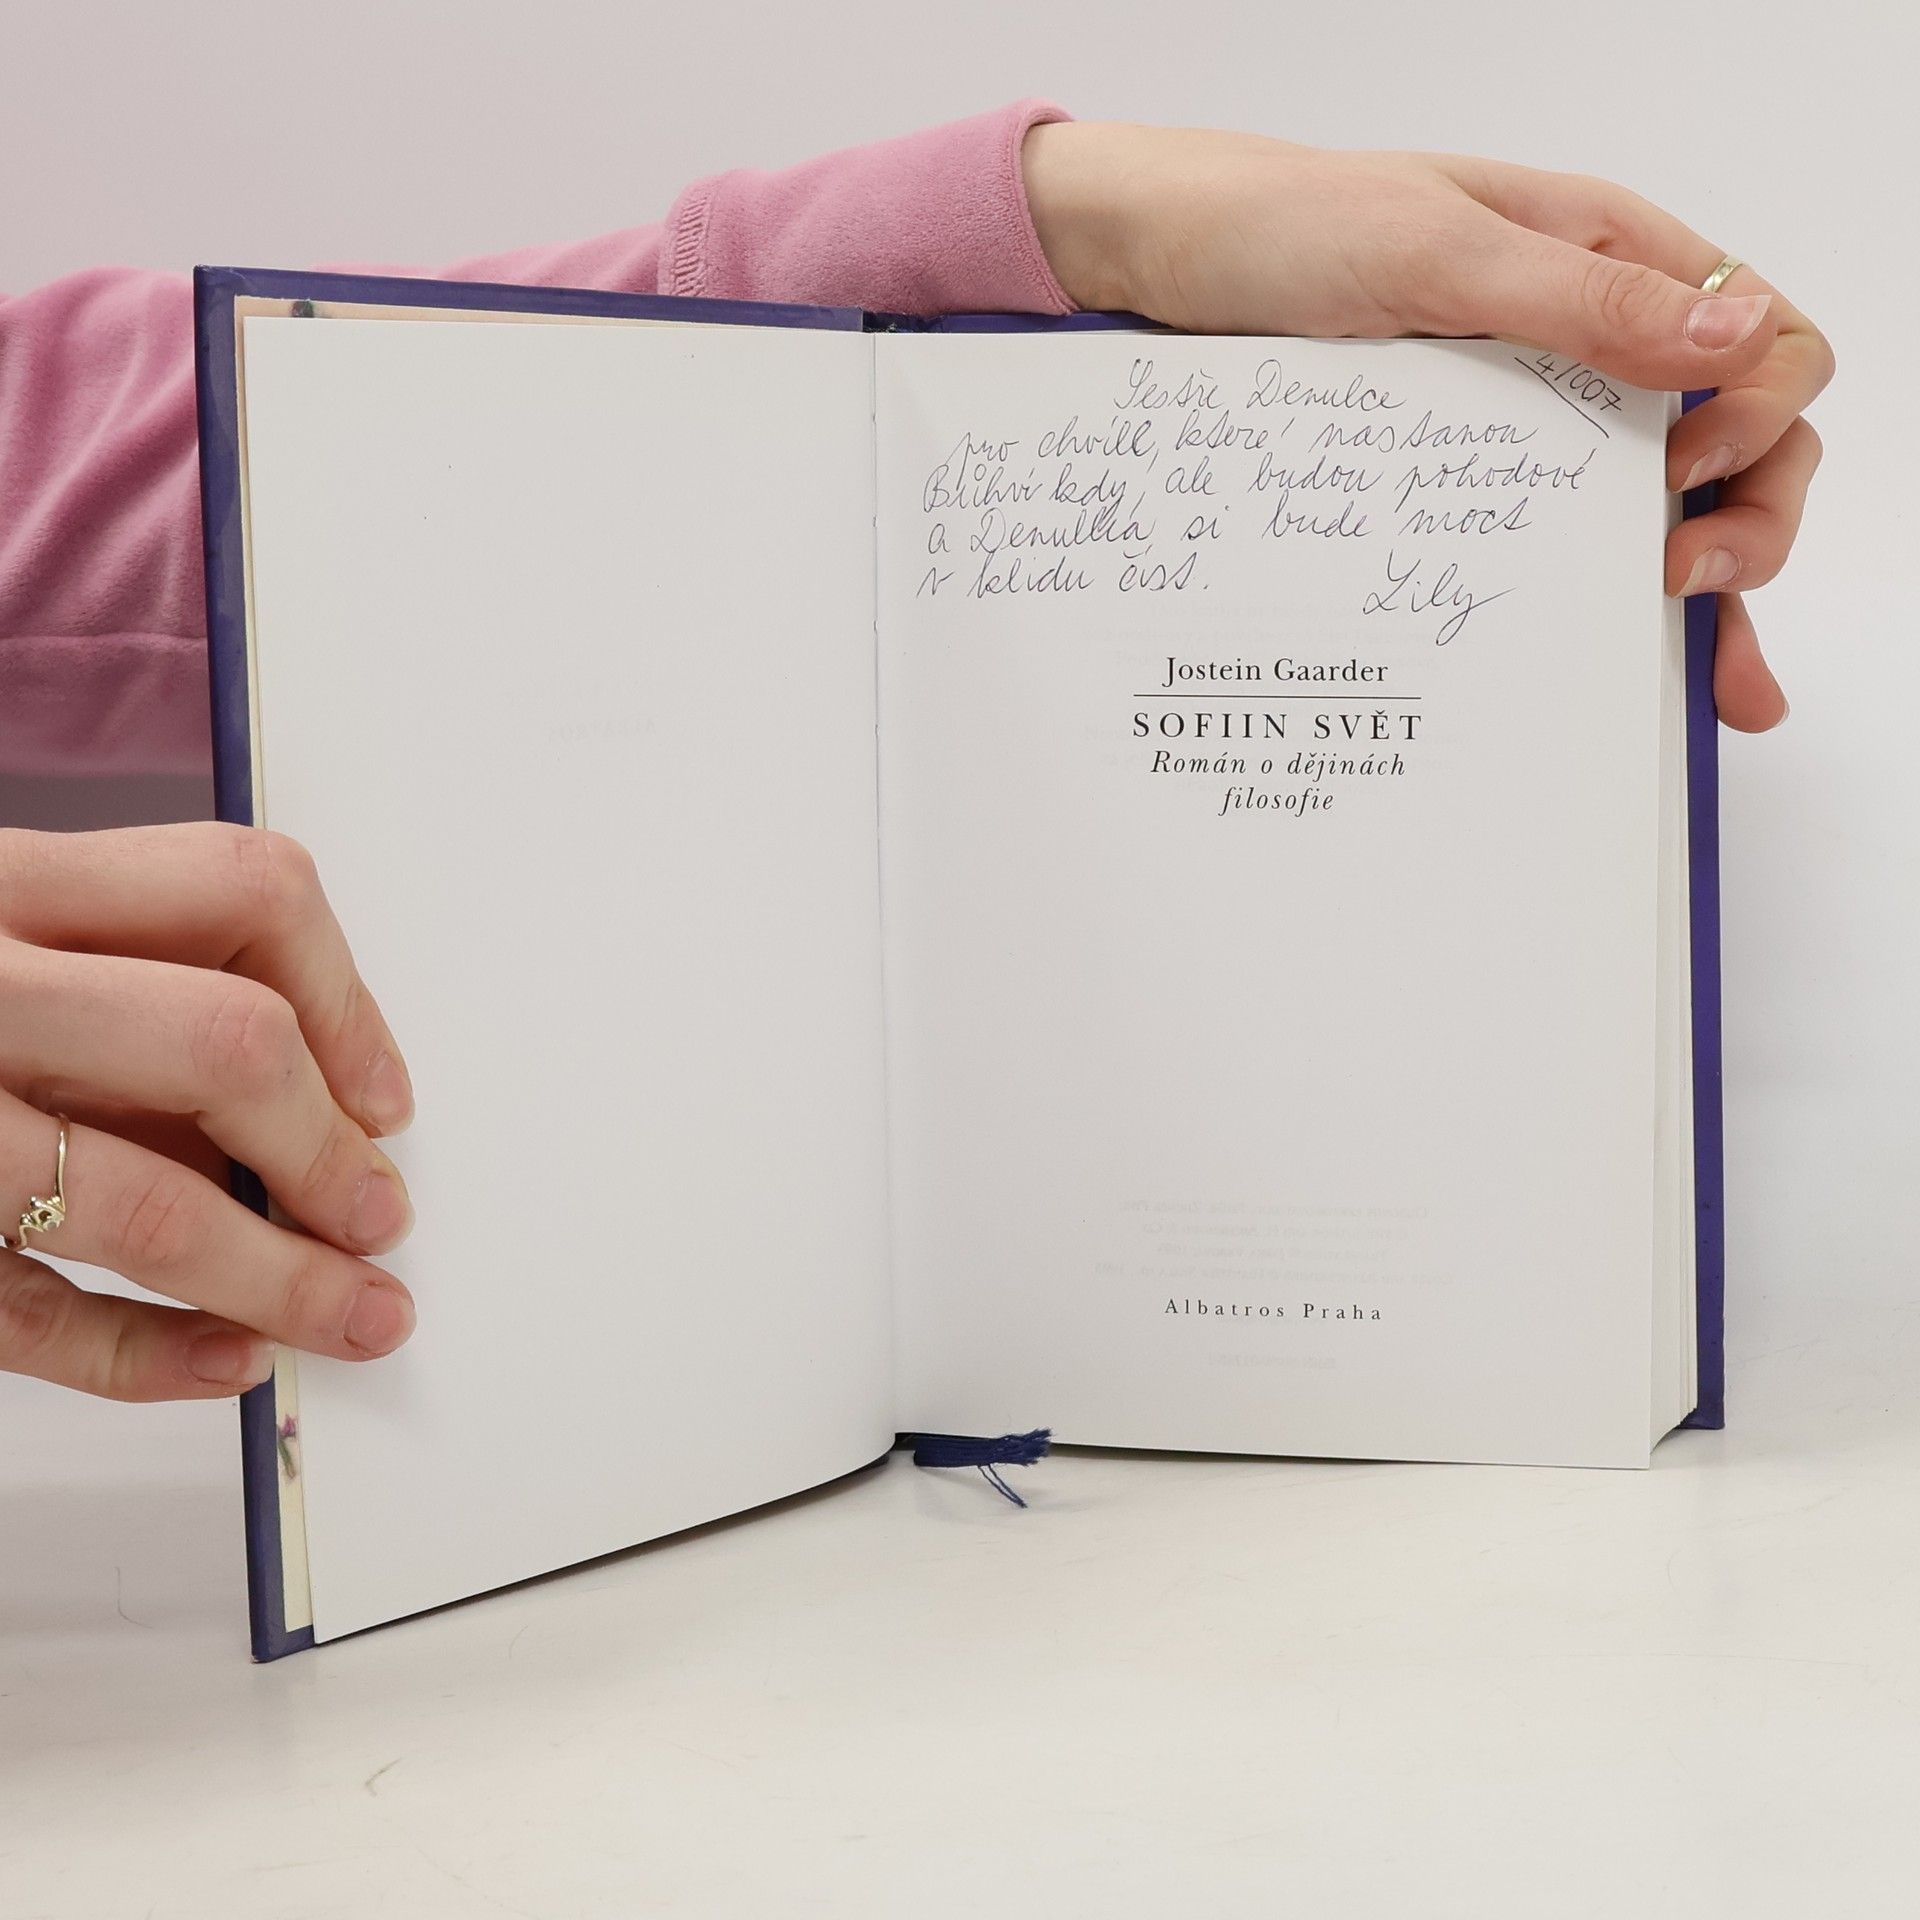 4/007
Sestře Denulce
pro chvíle, které nastanou
Bůhví kdy, ale budou pohodové
a Denulka si bude moct
v klidu číst.
Lily
Jostein Gaarder
SOFIIN SVĚT
Román o dějinách
filosofie
Albatros Praha